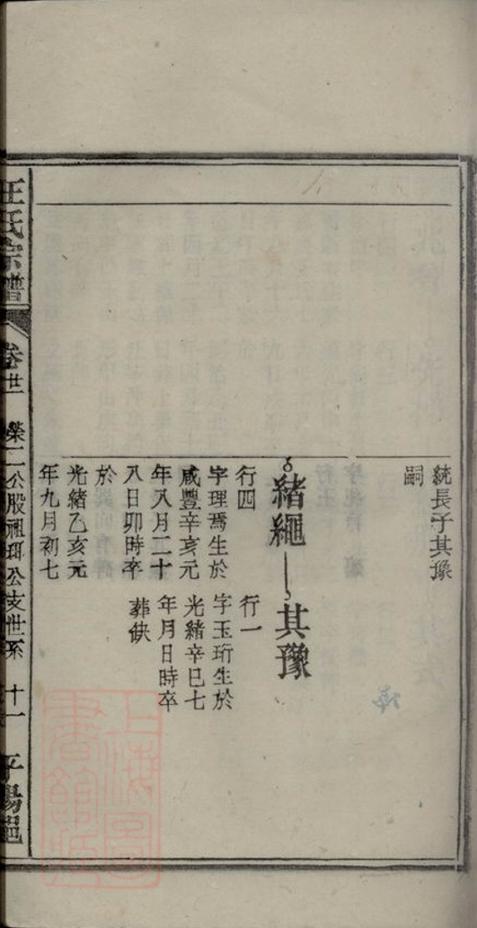 統長子其豫
嗣
緒繩
行四
字理焉生於
咸豐辛亥元
年八月二十
八日卯時卒
於
光緒乙亥元
年九月初七
其豫
行一
字玉珩生於
光緒辛巳七
年月日時卒
葬缺
王氏宗譜
卷廿二
榮二公股祖珥公支世系
十一
平陽郡
上海圖書館藏